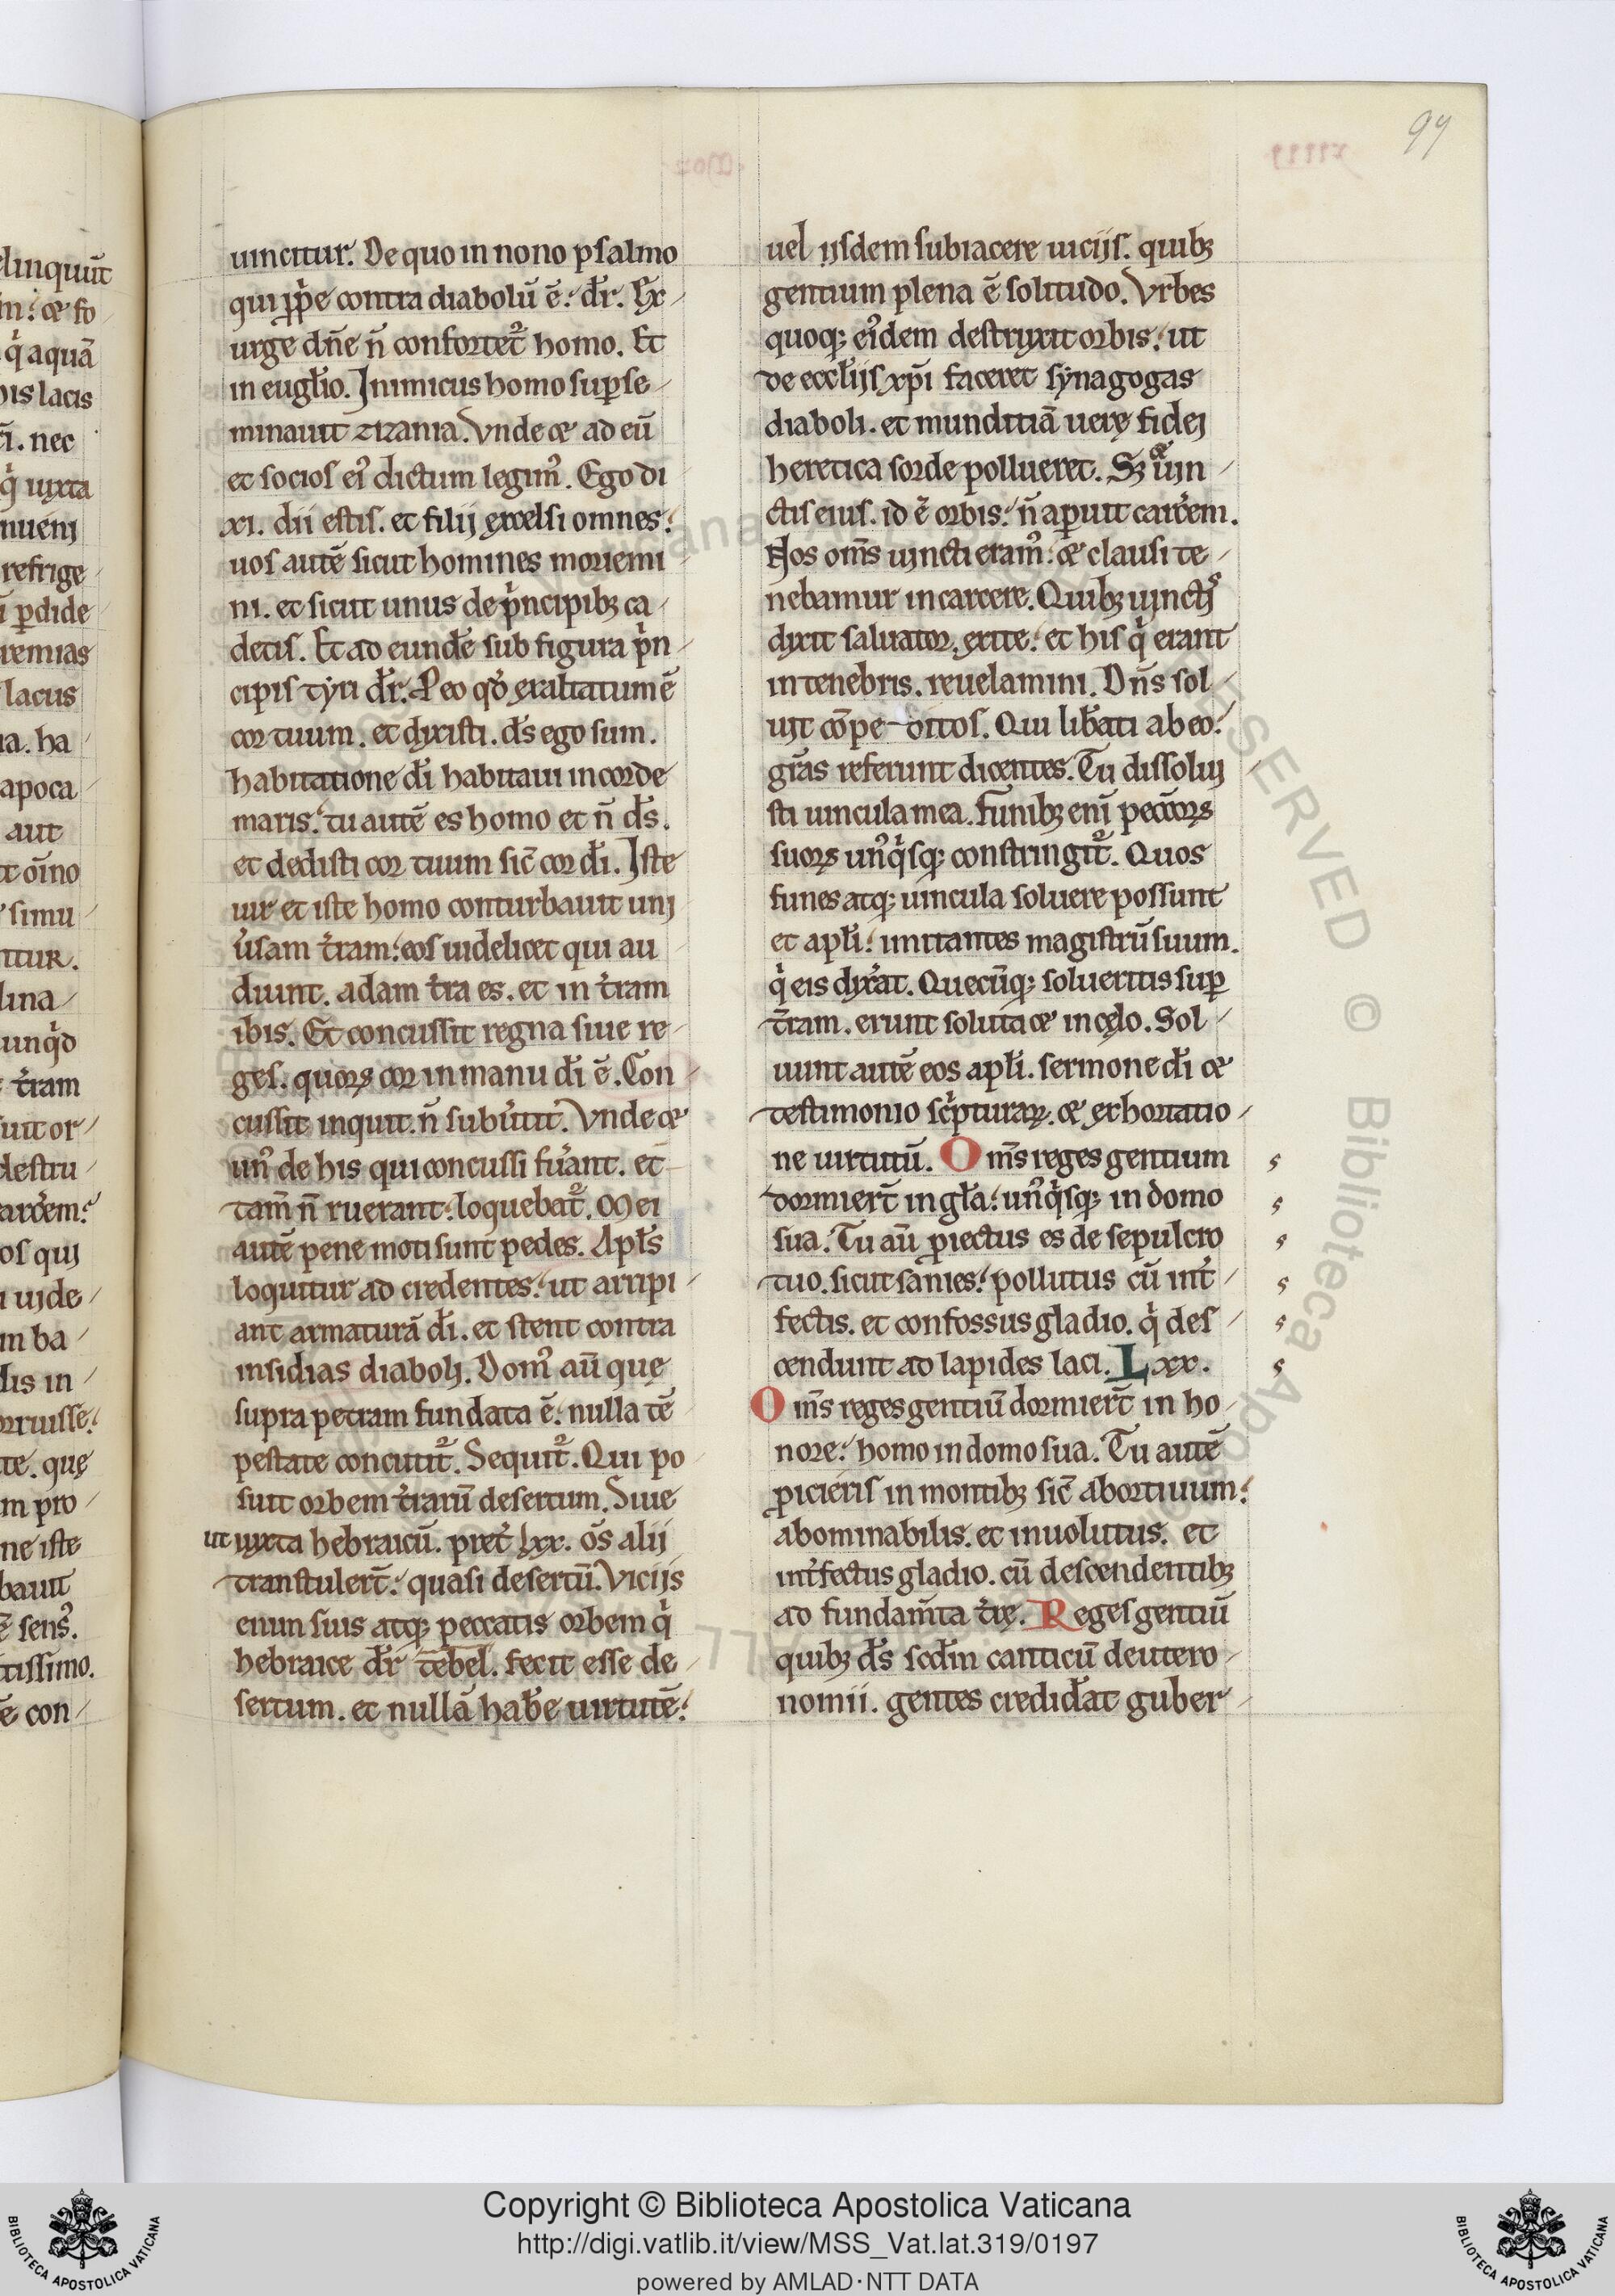 99
uincitur. De quo in nono psalmo
qui ꝓp̾e contra diabolū ē. dr̄. Ex
urge dn̄e n̄ confortet᷑ homo. Et
in euglio. Inimicus homo suꝑse
minauit zizania. Vnde ⁊ ad eū
et socios ei᷒ dictum legim᷒. Ego di
xi. dii estis. et filij excelsi omnes.
uos autē sicut homines moriemi
ni. et sicut unus de pⁱncipibꝫ ca
detis. Et ad eundē sub figura pⁱn
cipis tyri dr̄. Pro qͦd exaltatum ē
cor tuum. et dixisti. ds̄ ego sum.
habitatione dī habitaui in corde
maris. tu autē es homo et n̄ ds̄.
et dedisti cor tuum sic̄ cor dī. Iste
uir et iste homo conturbauit uni
u̾sam t̾ram. eos uidelicet qui au
diunt. adam t̾ra es. et in t̾ram
ibis. Et concussit regna siue re
ges. quoꝝ cor in manu dī ē. Con
cussit inquit. n̄ sub̾tit. Vnde ⁊
un᷒ de his qui concussi fu̾ant. et
tam̄ n̄ ruerant. loquebat᷑. Mei
autē pene moti sunt pedes. Apl̄s
loquitur ad credentes. ut arripi
ant armaturā dī. et stent contra
insidias diaboli. Dom᷒ aū quę
supra petram fundata ē. nulla tē
pestate concutit᷑. Sequit᷑. Qui po
suit orbem t̾rarū desertum. Siue
ut iuxta hebraicū. pret̾ lxx. os̄ alij
transtulert̄. quasi desertū. Vicijs
enim suis atqꝫ peccatis orbem qⁱ
hebraice dr̄ tēbel. fecit esse de
sertum. et nullā habe̾ uirtutē.
uel ijsdem subiacere uicijs. quibꝫ
gentium plena ē solitudo. Vrbes
quoqꝫ ei᷒dem destruxit orbis. ut
de eccl̄ijs xp̄i faceret synagogas
diaboli. et munditiā uerę fidei
heretica sorde pollueret. Sꝫ ⁊ uin
ctis eius. id ē orbis. n̄ aꝑuit carc̾em.
Nos om̄s uincti eram᷒. ⁊ clausi te
nebamur in carcere. Quibꝫ uinctis
dixit saluator. exite. et his qⁱ erant
in tenebris. reuelamini. Dn̄s sol
uit cōpe ditos. Qui libati ab eo.
grās referunt dicentes. Tu dissolui
sti uincula mea. Funibꝫ enī peccatoꝝ
suoꝝ un᷒qⁱsqꝫ constringit᷑. Quos
funes atqꝫ uincula soluere possunt
et apl̄i. imitantes magistrū suum.
qⁱ eis dix̾at. Quecūqꝫ solueritis suꝑ
t̾ram. erunt soluta ⁊ in cęlo. Sol
uunt autē eos apl̄i. sermone dī ⁊
testimonio scⁱpturaꝝ. ⁊ exhortatio
ne uirtutū. Om̄s reges gentium
dormiert̄ in gl̄a. un᷒qⁱsqꝫ in domo
sua. Tu aū ꝓiectus es de sepulcro
tuo. sicut sanies. pollutus cū int̾
fectis. et confossus gladio. qⁱ des
cendunt ad lapides laci. Lxx.
Om̄s reges gentiū dormiert̄ in ho
nore. homo in domo sua. Tu autē
ꝓicieris in montibꝫ sic̄ abortiuum.
abominabilis. et inuolutus. et
int̾fectus gladio. cū descendentibꝫ
ad fundam̄ta t̾rę. Reges gentiū
quibꝫ ds̄ scd̄m canticū deutero
nomii. gentes credid̾at guber
Copyright © Biblioteca Apostolica Vaticana
http://digi.vatlib.it/view/MSS_Vat.lat.319/0197
powered by AMLAD·NTT DATA
BIBLIOTECA APOSTOLICA VATICANA
BIBLIOTECA APOSTOLICA VATICANA